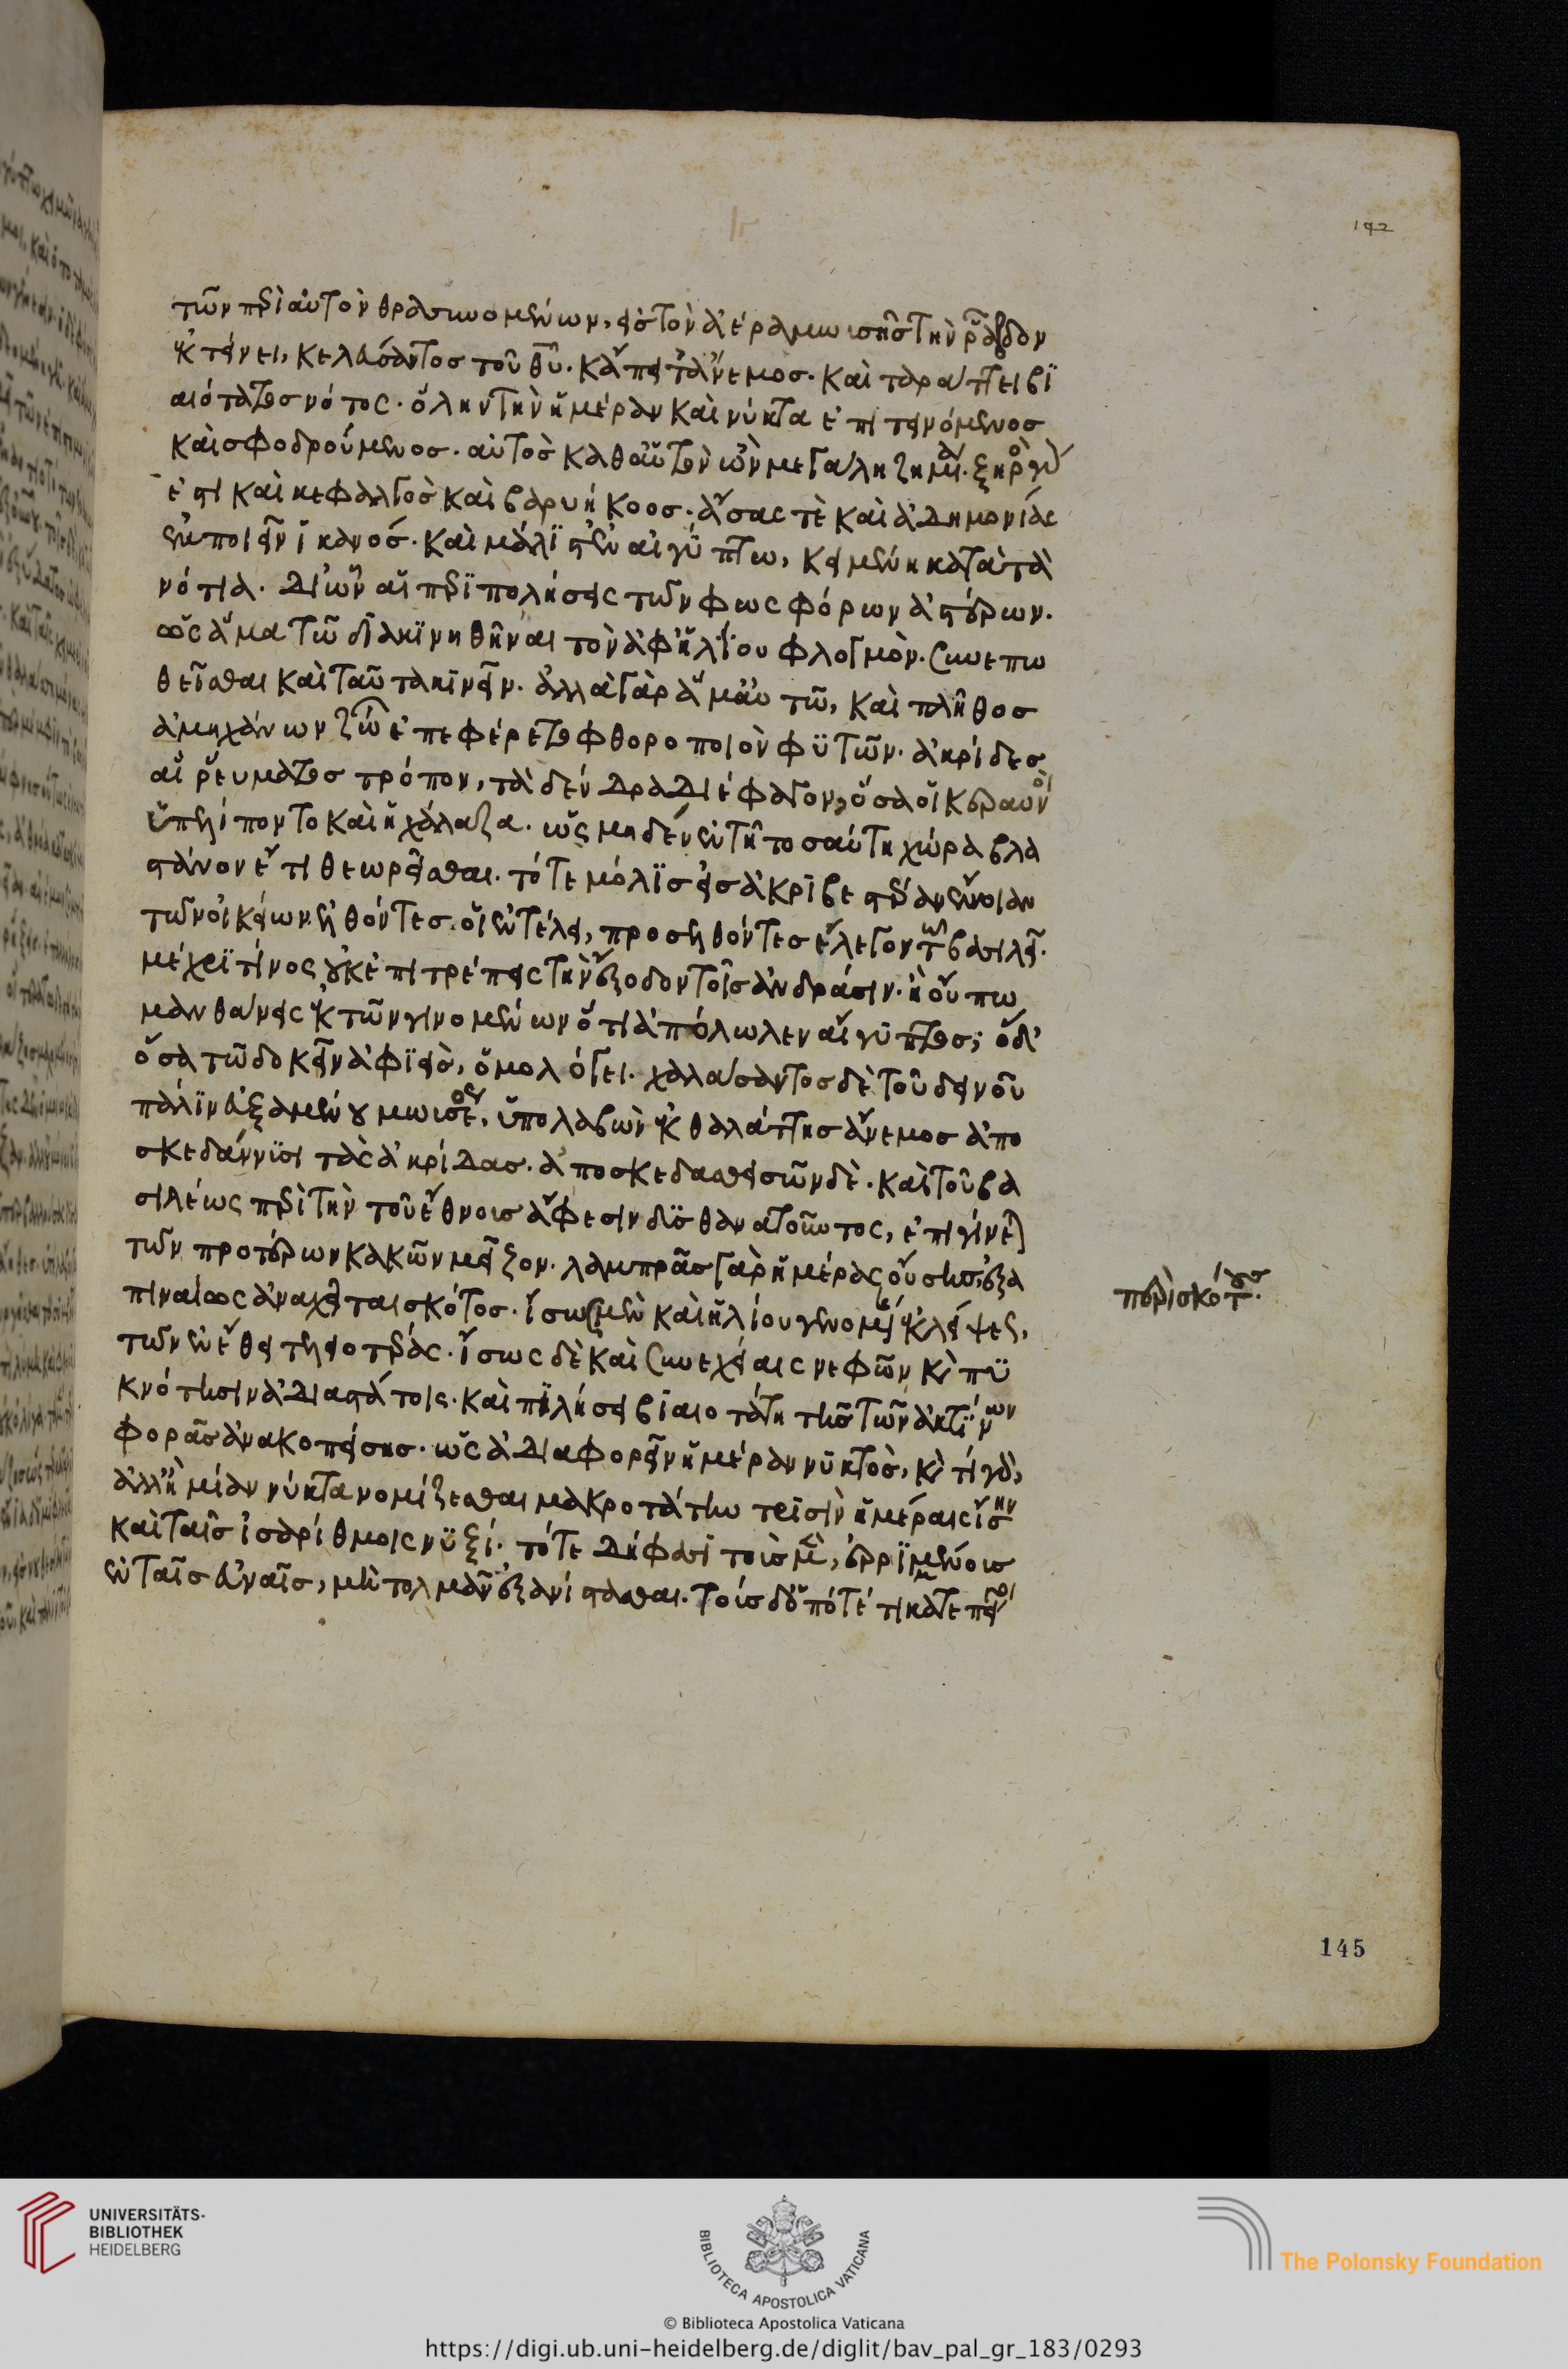 τῶν περὶ αὐτὸν θρασυνομένων, εἰς τὸν ἀέρα μωισῆς τὴν ῥάβδον
ἐκτείνει, κελεύσαντος τοῦ θ̅υ̅. κἄπειτ' ἄνεμος. καταράττει βϊ
αιότατος νότος. ὅλην τὴν ἡμέραν καὶ νύκτα ἐπιτεινόμενος
καὶ σφοδρούμενος. αὐτὸς καθ' αὑτὸν ὢν μεγάλη ζημία. ξηρὸς γὰρ
ἐστι καὶ κεφαλαλγὸς καὶ βαρυήκοος. ἄσας τὲ καὶ ἀδημονίας
ἐμποιεῖν ἱκανός. καὶ μάλϊστ' ἐν αἰγύπτω, κειμένη κατὰ τὰ
νότια. δι' ὧν αἱ περϊπολήσεις τῶν φωσφόρων ἀστέρων.
ὡς ἅμα τῶ διακϊνηθῆναι τὸν ἀφ' ἡλίου φλογμὸν. συνεπω
θεῖσθαι καὶ ταῦτα κινεῖν. ἀλλὰ γὰρ ἅμ' αὐτῶ, καὶ πλῆθος
ἀμηχάνων ζώ ἐπεφέρετο φθοροποιὸν φϋτῶν. ἀκρίδες
αἳ ῥεύματος τρόπον, τὰ δένδρα διέφαγον, ὅσα οἱ κεραυνοὶ
ὑπελίποντο καὶ ἡ χάλαζα. ὡς μηδὲν ἐν τῆ τοσαύτη χώρα βλα
στάνον ἔτι θεωρεῖσθαι. τότε μόλϊς εἰς ἀκρϊβεστέραν ἔννοιαν
τῶν οἰκείων ἐλθόντες οἱ ἐν τέλει, προσελθόντες ἔλεγον τῶ βασιλεῖ.
μέχρϊ τίνος οὐκ ἐπιτρέπεις τὴν ἔξοδον τοῖς ἀνδράσιν. ἢ οὔπω
μανθάνεις ἐκ τῶν γινομένων ὅτι ἀπόλωλεν αἴγυπτος; ὁ δ'
ὅσα τῶ δοκεῖν ἀφϊεὶς, ὁμολόγει. χαλάσαντος δὲ τοῦ δεινοῦ
πάλϊν εὐξαμένου μωισέος, ὑπολαβὼν ἐκ θαλάττης ἄνεμος ἀπο
σκεδάννϋσι τὰς ἀκρίδας. ἀποσκεδασθεισῶν δὲ. καὶ τοῦ βα
σιλέως περὶ τὴν τοῦ ἔθνους ἄφεσιν δυσθανατοῦντος, ἐπιγίνεται
τῶν προτέρων κακῶν μεῖζον. λαμπρᾶς γὰρ ἡμέρας οὔσης, ἐξα
πιναίως ἀναχεῖται σκότος. ἴσως μὲν καὶ ἡλίου γενομένης ἐκλείψεως,
τῶν ἐν ἔθει τελειοτέρας. ἴσως δὲ καὶ συνεχείαις νεφῶν κὲ πϋ
κνότησιν ἀδιαστάτοις. καὶ πϊλήσει βϊαιοτάτη τῆς τῶν ἀκτίνων
φορᾶς ἀνακοπείσης. ὡς ἀδιαφορεῖν ἡμέραν νυκτὸς, κὲ τί γὰρ,
ἀλλ' ἢ μίαν νύκτα νομίζεσθαι μακροτάτην τρϊσὶν ἡμέραις ἴσην
καὶ ταῖς ἰσαρίθμοις νϋξί. τότε δή φασϊ τοὺς μὲν, ἐρριμμένους
ἐν ταῖς εὐναῖς, μὴ τολμᾶν ἐξανίστασθαι. τοὺς δ' ὁπότέ τι κατεπείγοι
περὶ σκότους.
192
145
UNIVERSITÄTS-
BIBLIOTHEK
HEIDELBERG
BIBLIOTECA APOSTOLICA VATICANA
The Polonsky Foundation
© Biblioteca Apostolica Vaticana
https://digi.ub.uni-heidelberg.de/diglit/bav_pal_gr_183/0293